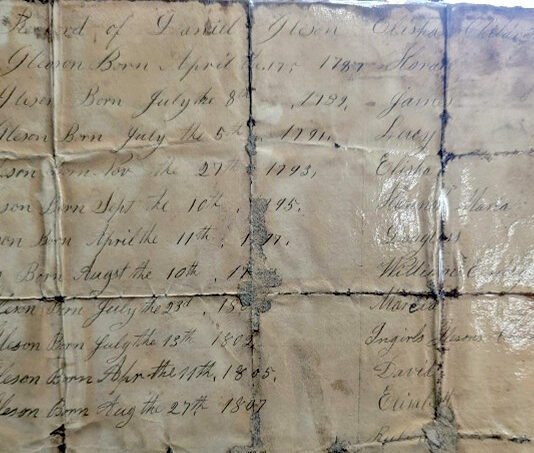 Record of Daniel Gleson Elisha Childre
Gleason Born April the 17, 1787 Horac
Gleson Born July the 8th, 1789, James
Gleson Born July the 5th, 1791, Lucy
leson Born Nov the 27th 1793, Elisha
son Born Sept the 10th, 1795, Maria
son Born April the 11th, 1797, Douglass
Born Augst the 10th, 17 William
leson Born July the 23d, 180 Marcia
Gleson Born July the 13th 1802
leson Born Apr the 11th, 1805, David
leson Born Aug the 27th 1807 Elizabeth